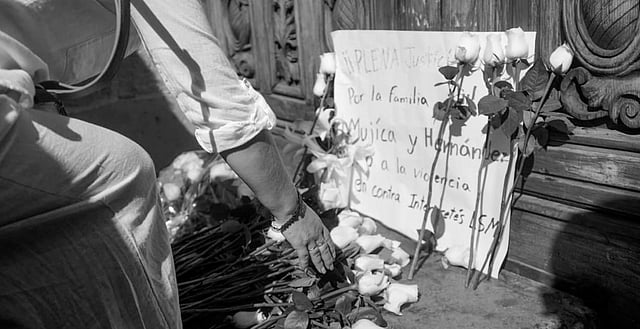 ¡¡PLENA Justicia
Por la familia
Mujica y Hernández
a la violencia
en contra Interpretés LSM